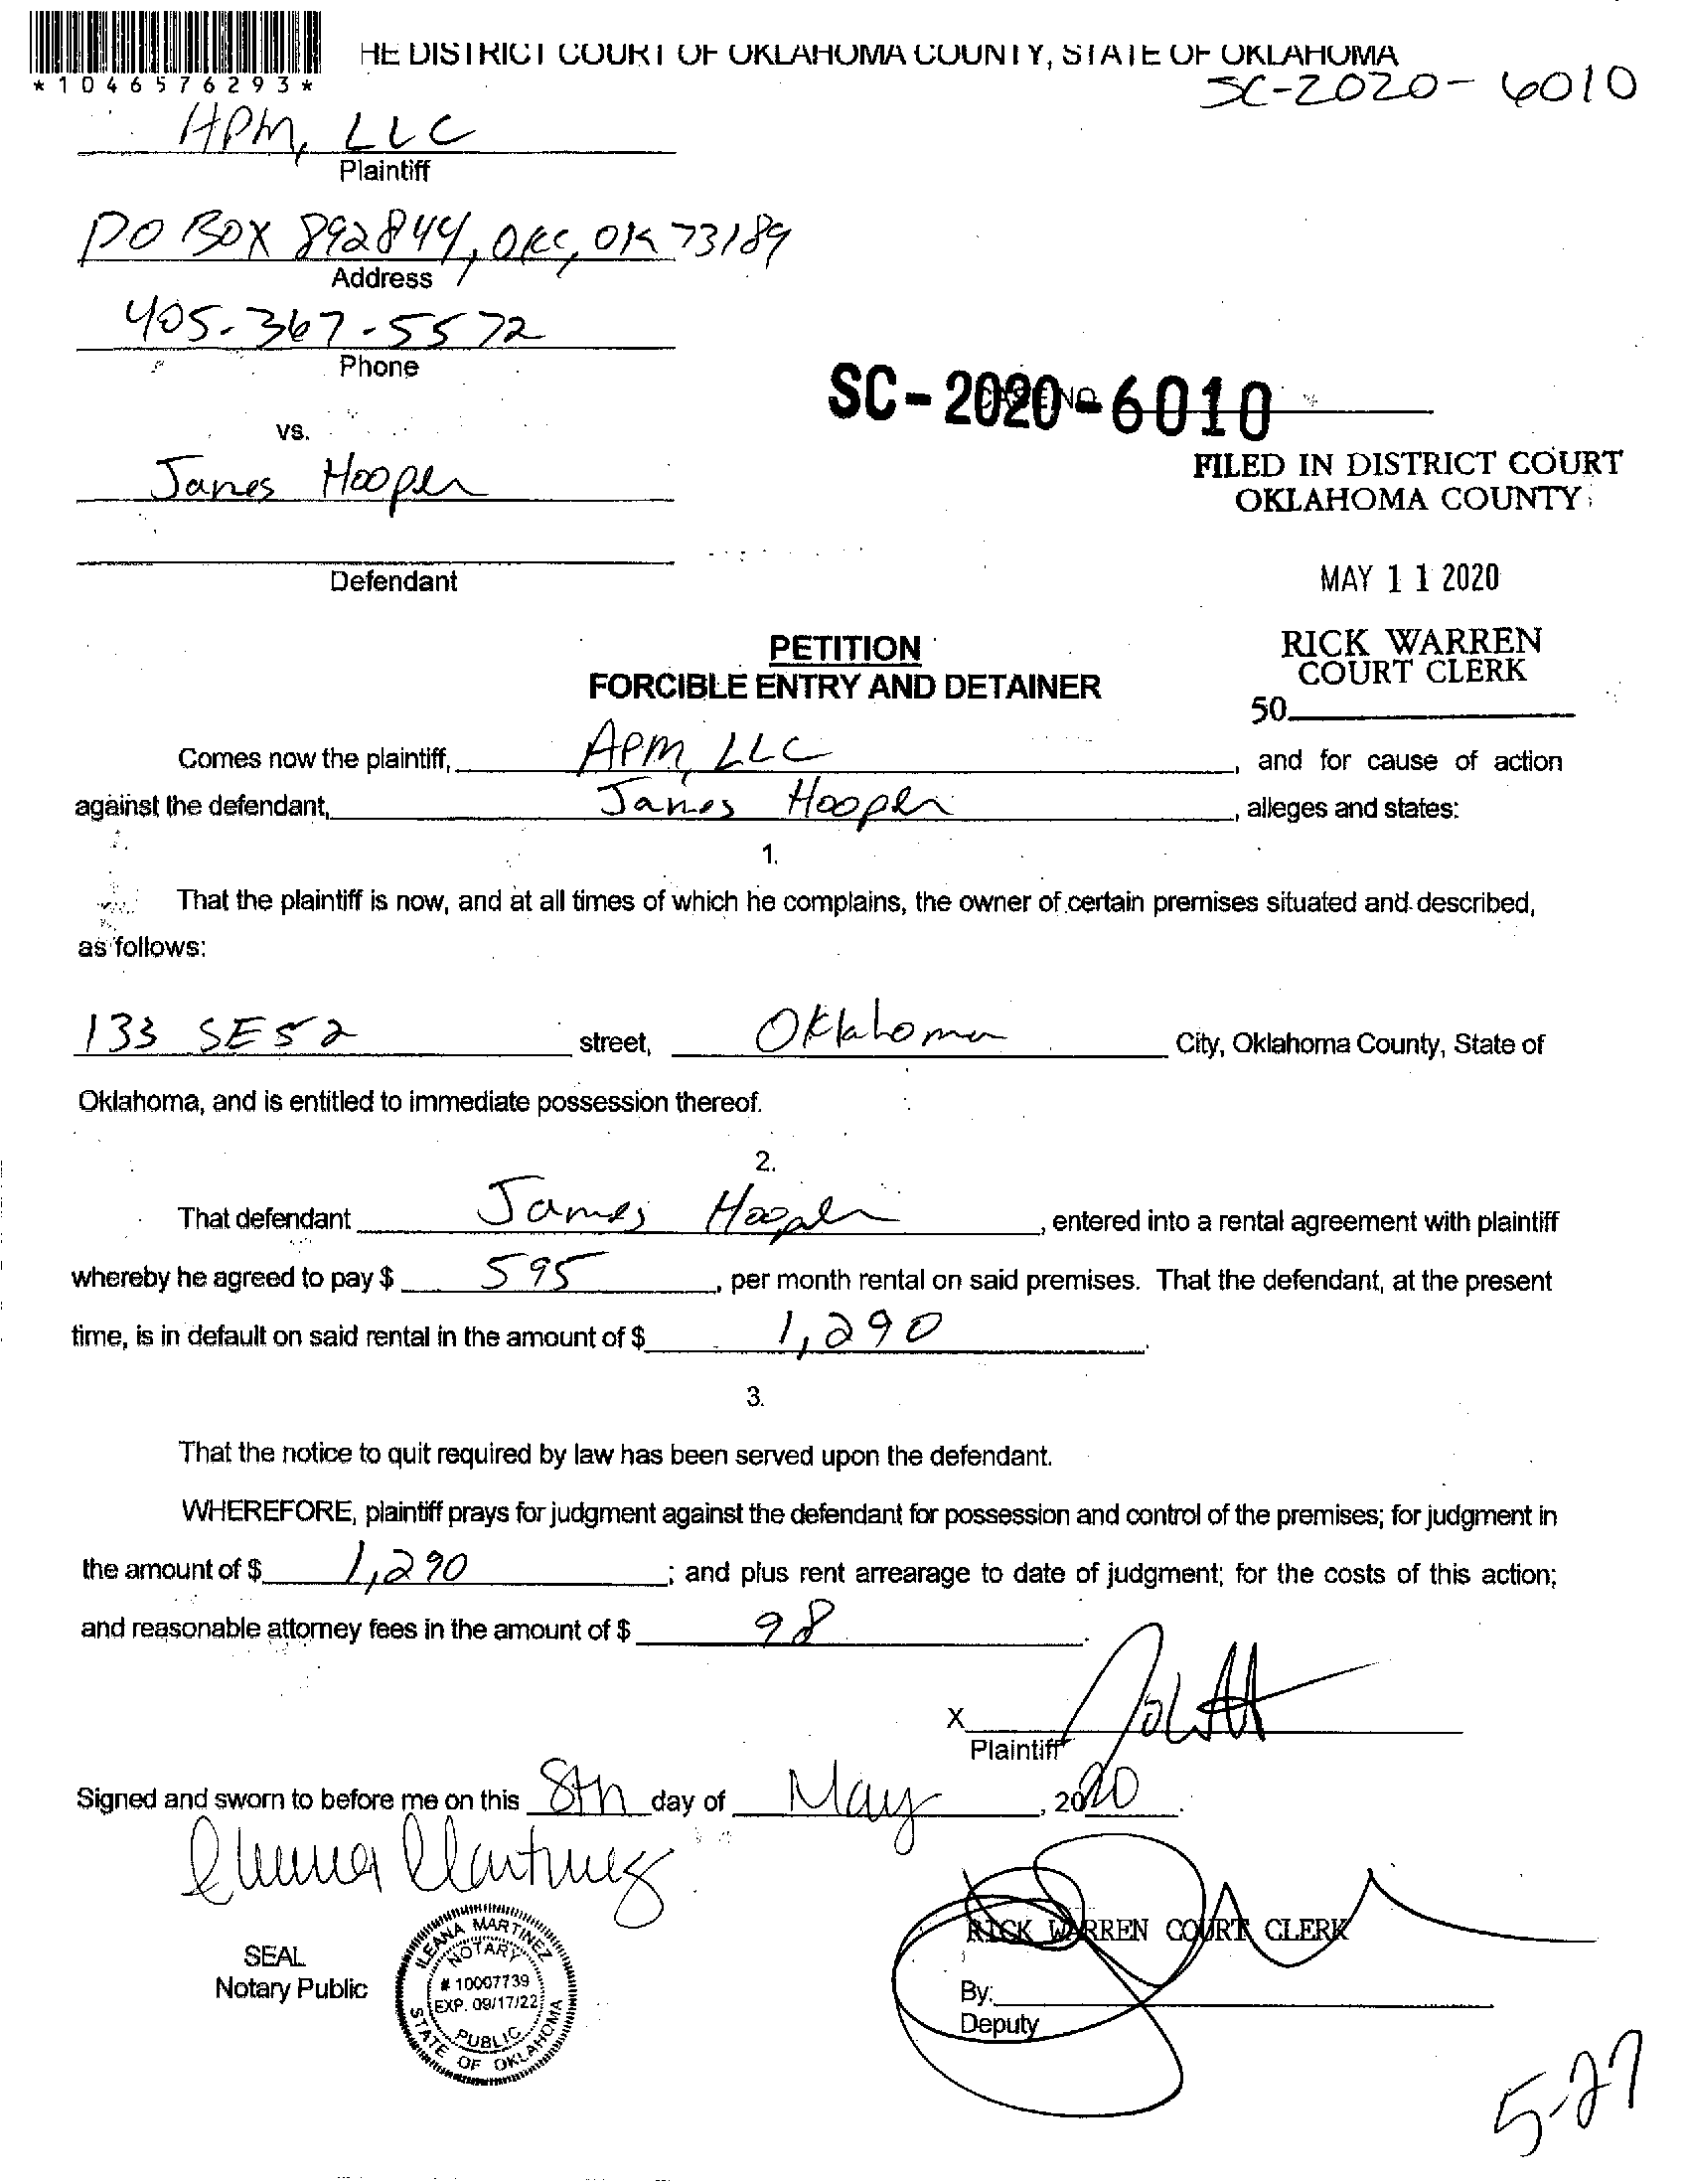 HE DISTRICT COURT OF OKLAHOMA COUNTY, STATE OF OKLAHOMA
*1046576293*
SC-2020-6010
APM, LLC
Plaintiff
PO BOX 892844, OKC, OK 73189
Address
405-367-5572
Phone
SC-2020-6010
CASE NO.
vs.
James Hooper
FILED IN DISTRICT COURT
OKLAHOMA COUNTY
Defendant
MAY 11 2020
PETITION
FORCIBLE ENTRY AND DETAINER
RICK WARREN
COURT CLERK
50
Comes now the plaintiff, APM, LLC, and for cause of action
against the defendant, James Hooper, alleges and states:
1.
That the plaintiff is now, and at all times of which he complains, the owner of certain premises situated and described,
as follows:
133 SE 52 street, Oklahoma City, Oklahoma County, State of
Oklahoma, and is entitled to immediate possession thereof.
2.
That defendant James Hooper, entered into a rental agreement with plaintiff
whereby he agreed to pay $ 595, per month rental on said premises. That the defendant, at the present
time, is in default on said rental in the amount of $ 1,290.
3.
That the notice to quit required by law has been served upon the defendant.
WHEREFORE, plaintiff prays for judgment against the defendant for possession and control of the premises; for judgment in
the amount of $ 1,290; and plus rent arrearage to date of judgment; for the costs of this action;
and reasonable attorney fees in the amount of $ 98.
X
Plaintiff
Signed and sworn to before me on this 8th day of May, 2020.
Ileana Martinez
SEAL
Notary Public
ILEANA MARTINEZ
NOTARY
# 10007739
EXP. 09/17/22
PUBLIC
STATE OF OKLAHOMA
RICK WARREN COURT CLERK
By:
Deputy
5-27